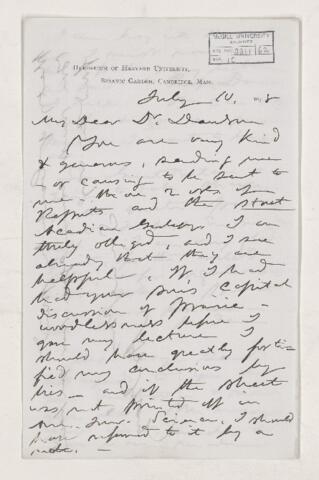 McGILL UNIVERSITY
ARCHIVES
ACC. NO. 2211 62
REF. 16
HERBARIUM OF HARVARD UNIVERSITY,
BOTANIC GARDEN, CAMBRIDGE, MASS.
July 10, 8
My Dear Dr. Dawson
You are very kind
& generous, sending me
– or causing to be sent to
me – the 2 vols. of your
Reports and the
Acadian Geology. I am
truly obliged, and I see
already that they are
helpful. If I had
had your son's capital
discussion of prairie –
woodlessness before I
gave my lecture I
should have greatly forti-
fied my conclusions by
his – and if the sheet
was not printed off in
Am. Jour. Science, I should
have referred to it by a
note. –